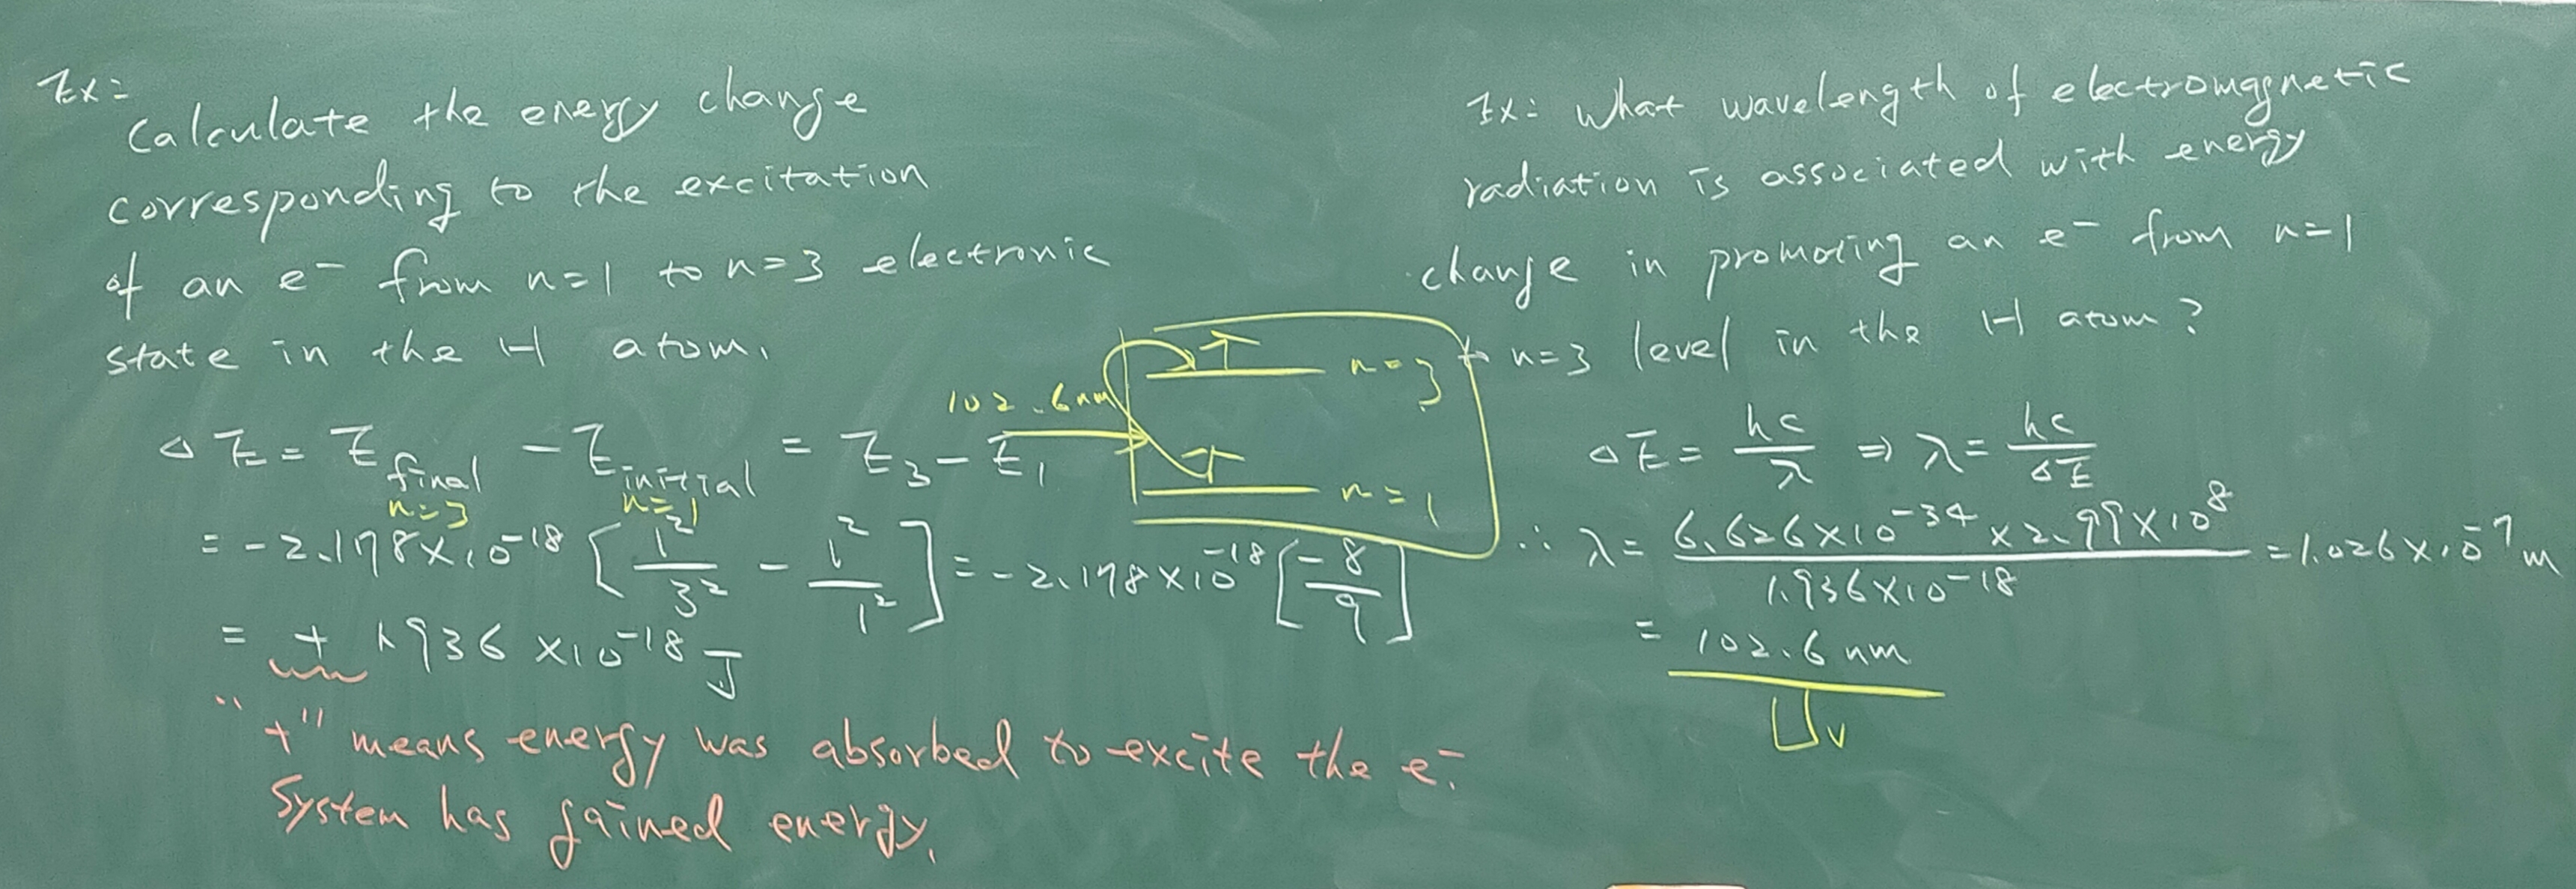 Ex:
Calculate the energy change
corresponding to the excitation
of an e⁻ from n=1 to n=3 electronic
state in the H atom.
ΔE = E final − E initial = E₃ − E₁
n=3 n=1
= −2.178×10⁻¹⁸ [1²/3² − 1²/1²] = −2.178×10⁻¹⁸ [−8/9]
= + 1.936 ×10⁻¹⁸ J
"+" means energy was absorbed to excite the e⁻.
System has gained energy.
102.6nm
n=3
n=1
Ex: What wavelength of electromagnetic
radiation is associated with energy
change in promoting an e⁻ from n=1
to n=3 level in the H atom?
ΔE = hc/λ ⇒ λ = hc/ΔE
∴ λ = 6.626×10⁻³⁴ × 2.99×10⁸ / 1.936×10⁻¹⁸ = 1.026×10⁻⁷ m
= 102.6 nm
UV